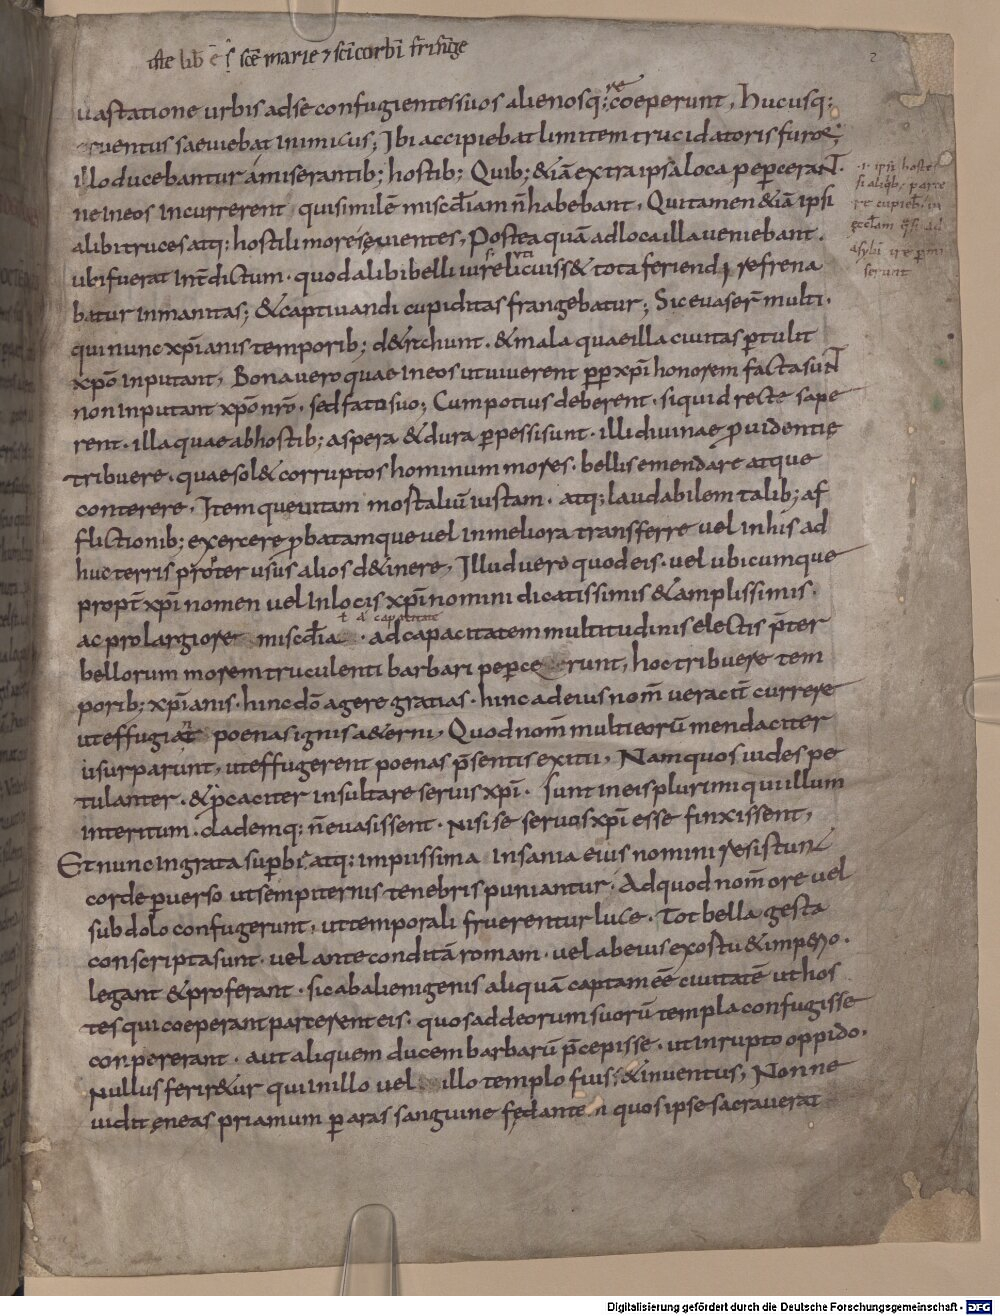 Iste lib ē s̄ scē marie ⁊ sci corbi frisinge
2
uastatione urbis adse confugientes suos alienosq; coeperunt, Hucusq;
cruentus saeuiebat inimicus; Ibi accipiebat limitem trucidatoris furor;
illo ducebantur amiserantib; hostib; Quib; &iā extra ipsa loca peꝑcerant.
ne in eos incurrerent quisimilē miscd̄iam n̄ habebant, Quitamen &iā ipsi
alibi truces atq; hostili more sęuientes, Postea quā adloca illa ueniebant.
ubi fuerat int̄dictum · quod alibi belli iure licuiss& tota feriendi refrena
batur inmanitas; & captiuandi cupiditas frangebatur; Sic euaser̄ multi ·
qui nunc xp̄ianis temporib; d&rahunt · & mala quae illa ciuitas ꝑtulit
xp̄o inputant, Bona uero quae in eos ut uiuerent ꝓp xp̄i honorem facta sunt
non inputant xp̄o nr̄o · sed fato suo; Cum potius deberent · siquid recte sape
rent · illa quae ab hostib; aspera & dura ꝑpessi sunt · illi diuinae ꝓuidentię
tribuere · quae sol& corruptos hominum mores · bellis emendare atque
conterere, Item que uitam mortaliū iustam · atq; laudabilem talib; af
flictionib; exercere ꝓbatamque uel in meliora transferre uel in his ad
huc terris propter usus alios d&inere, Illud uero quod eis · uel ubicumque
propt̄ xp̄i nomen uel in locis xp̄i nomini dicatissimis & amplissimis ·
ac pro largiore miscd̄ia · ad capacitatem multitudinis electis p̄ter
bellorum morem truculenti barbari peꝑcerunt, hoc tribuere tem
porib; xp̄ianis · hinc dō agere gratias · hinc adeius nom̄ ueracit̄ currere
ut effugiant poenas ignis aeterni, Quod nom̄ multi eorū mendaciter
usurparunt, ut effugerent poenas p̄sentis exitii, Nam quos uides pe
tulanter · & p̄caciter insultare seruis xp̄i · sunt in eis plurimi qui illum
interitum · clademq; n̄ euasissent · nisi se seruos xp̄i esse finxissent,
Et nunc ingrata suꝑbia atq; impiissima insania eius nomini resistunt
corde ꝑuerso ut sempiternis tenebris puniantur · Ad quod nom̄ ore uel
subdolo confugerunt, ut temporali fruerentur luce · Tot bella gesta
conscripta sunt · uel ante conditā romam · uel abeius exortu & imꝑio ·
legant & proferant · sic ab alienigenis aliquā captam eē ciuitatē ut hos
tes qui coeperant parcerent eis · quos ad deorum suorū templa confugisse
conpererant · aut aliquem ducem barbarū p̄cepisse · ut inrupto oppido ·
Nullus ferir&ur qui in illo uel illo templo fuiss& inuentus, Nonne
uidit ęneas priamum ꝑ aras sanguine fędantem quos ipse sacrauerat
Digitalisierung gefördert durch die Deutsche Forschungsgemeinschaft - DFG